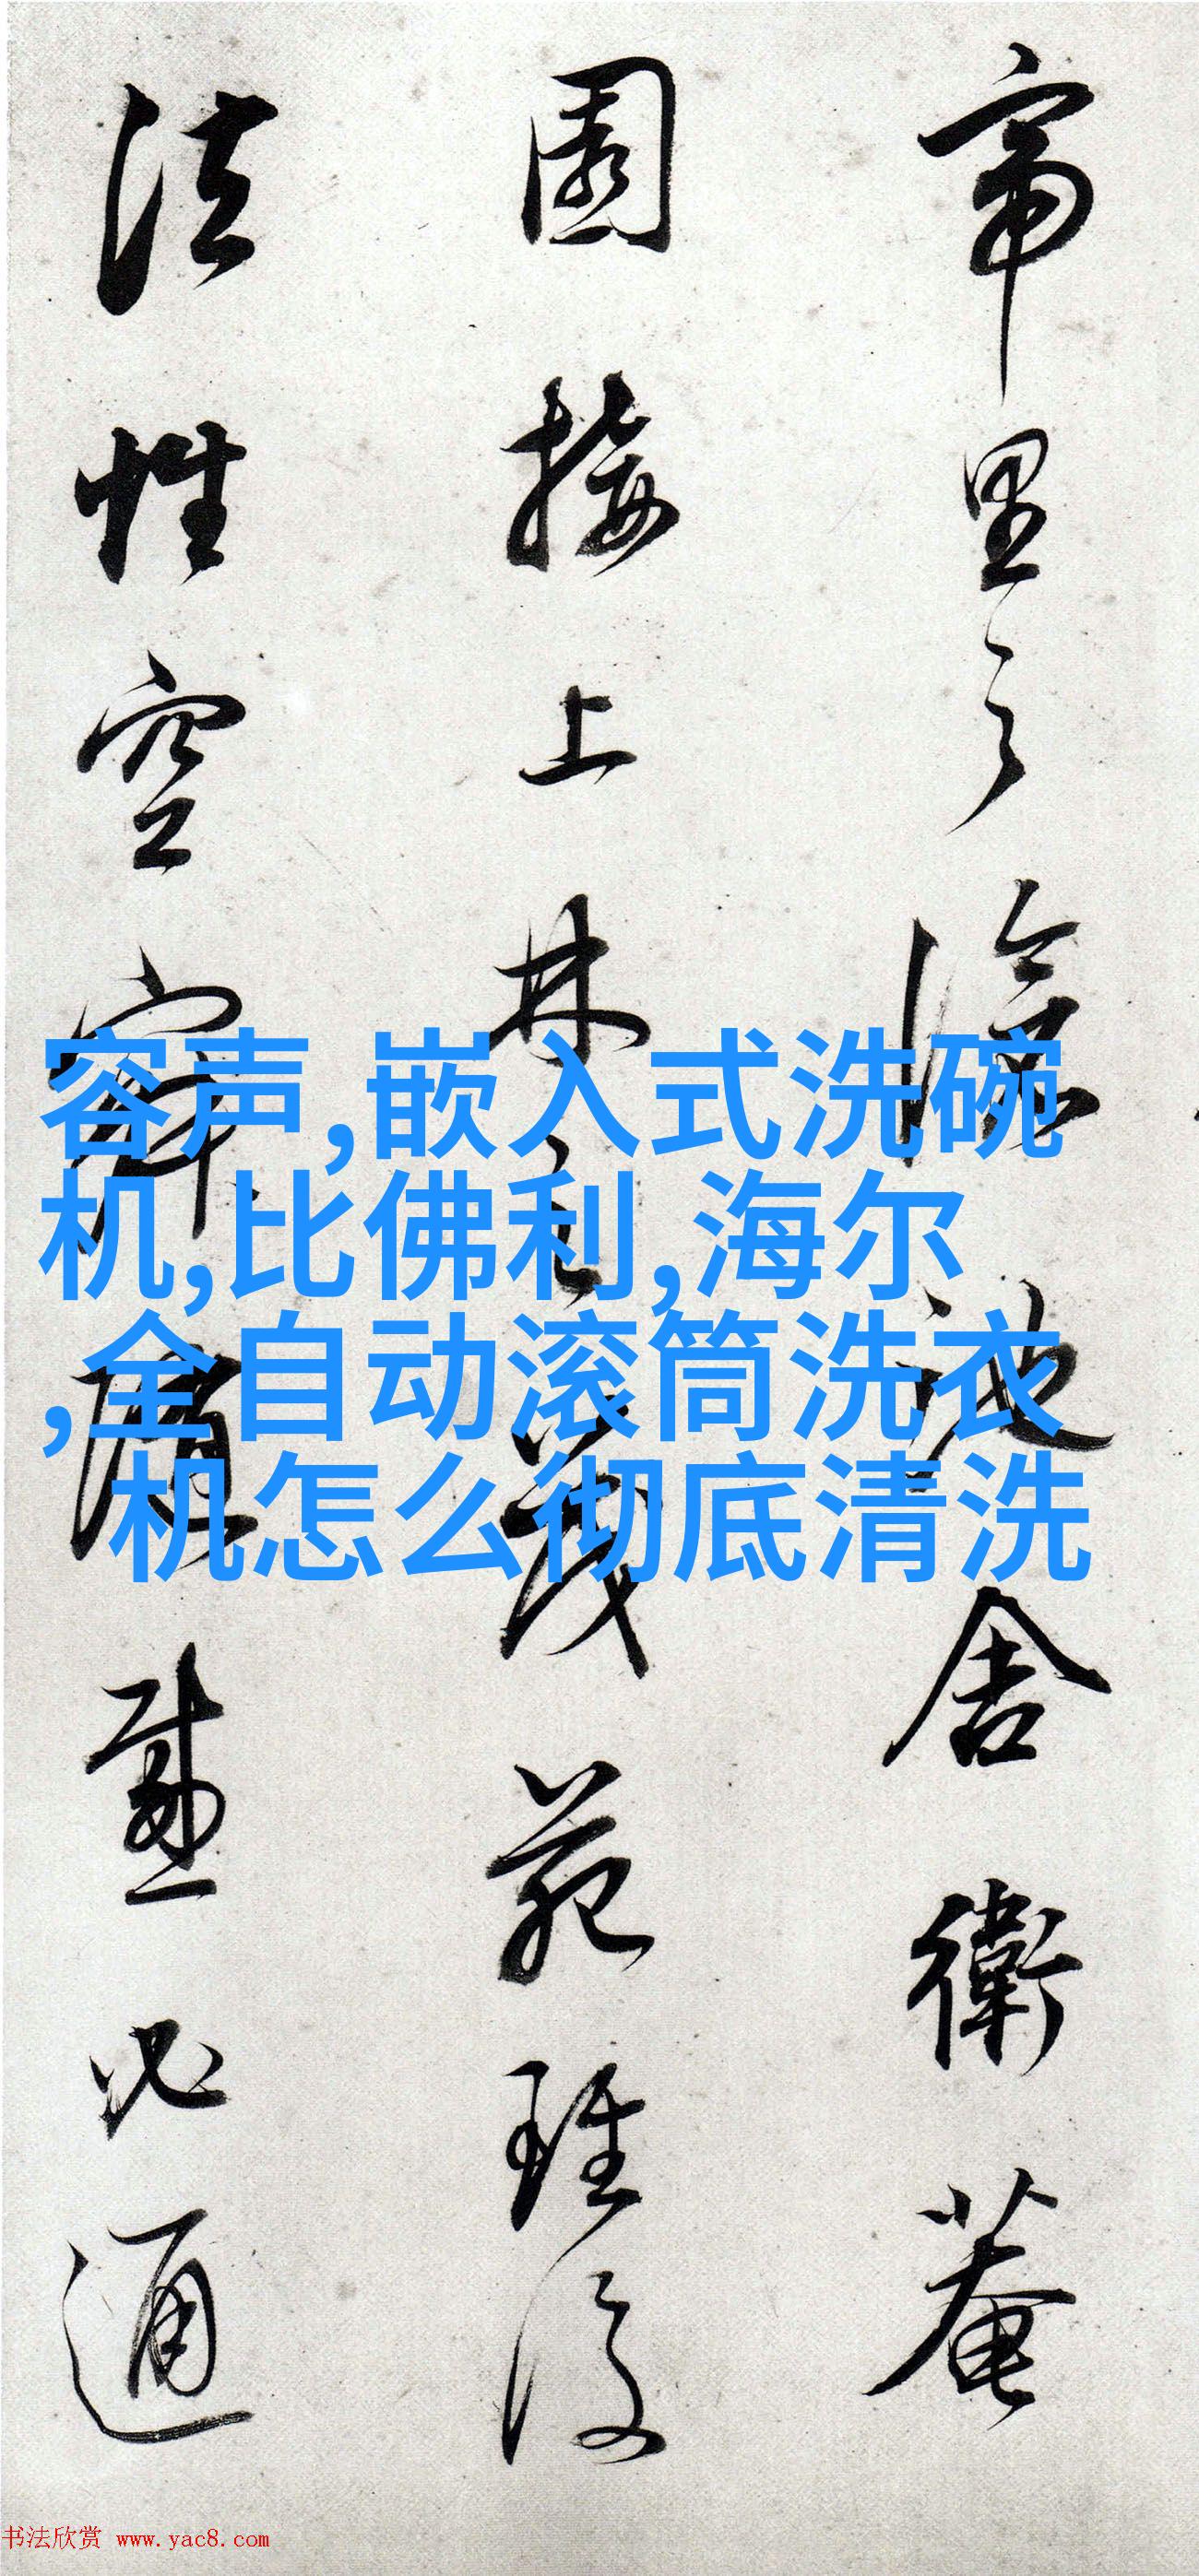 帝里之阴池舍卫菴
园接上林之茂苑琏后
法性空寂隨感必通
容声,嵌入式洗碗
机,比佛利,海尔
,全自动滚筒洗衣
机怎么彻底清洗
书法欣赏 www.yac8.com